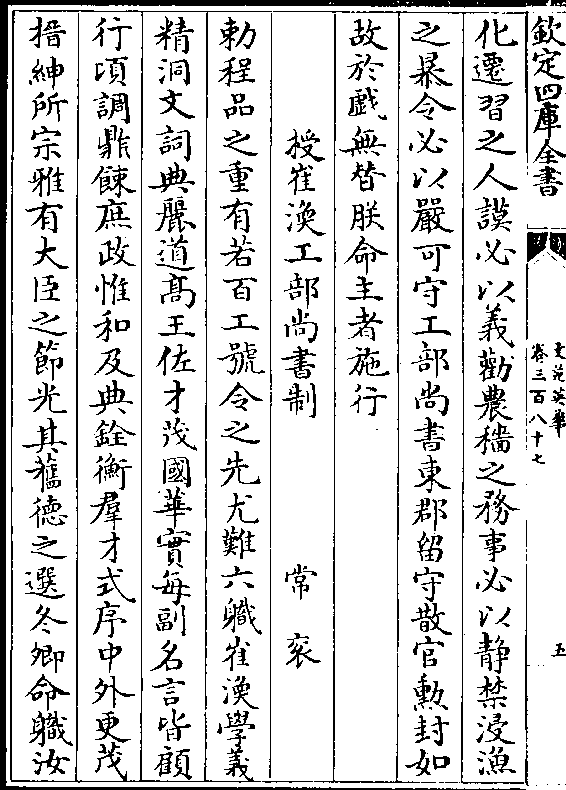 欽定四庫全書
文苑英華
卷三百八十七
五
化遷習之人謨必以義勸農穡之務事必以静禁浸漁
之暴令必以嚴可守工部尚書東郡留守散官勲封如
故於戲無替朕命主者施行
授崔渙工部尚書制 常衮
勅程品之重有若百工號令之先尤難六職崔渙學義
精洞文詞典麗道髙王佐才茂國華實每副名言皆顧
行頃調鼎餗庶政惟和及典銓衡羣才式序中外更茂
搢紳所宗雅有大臣之節光其舊德之選冬卿命職汝